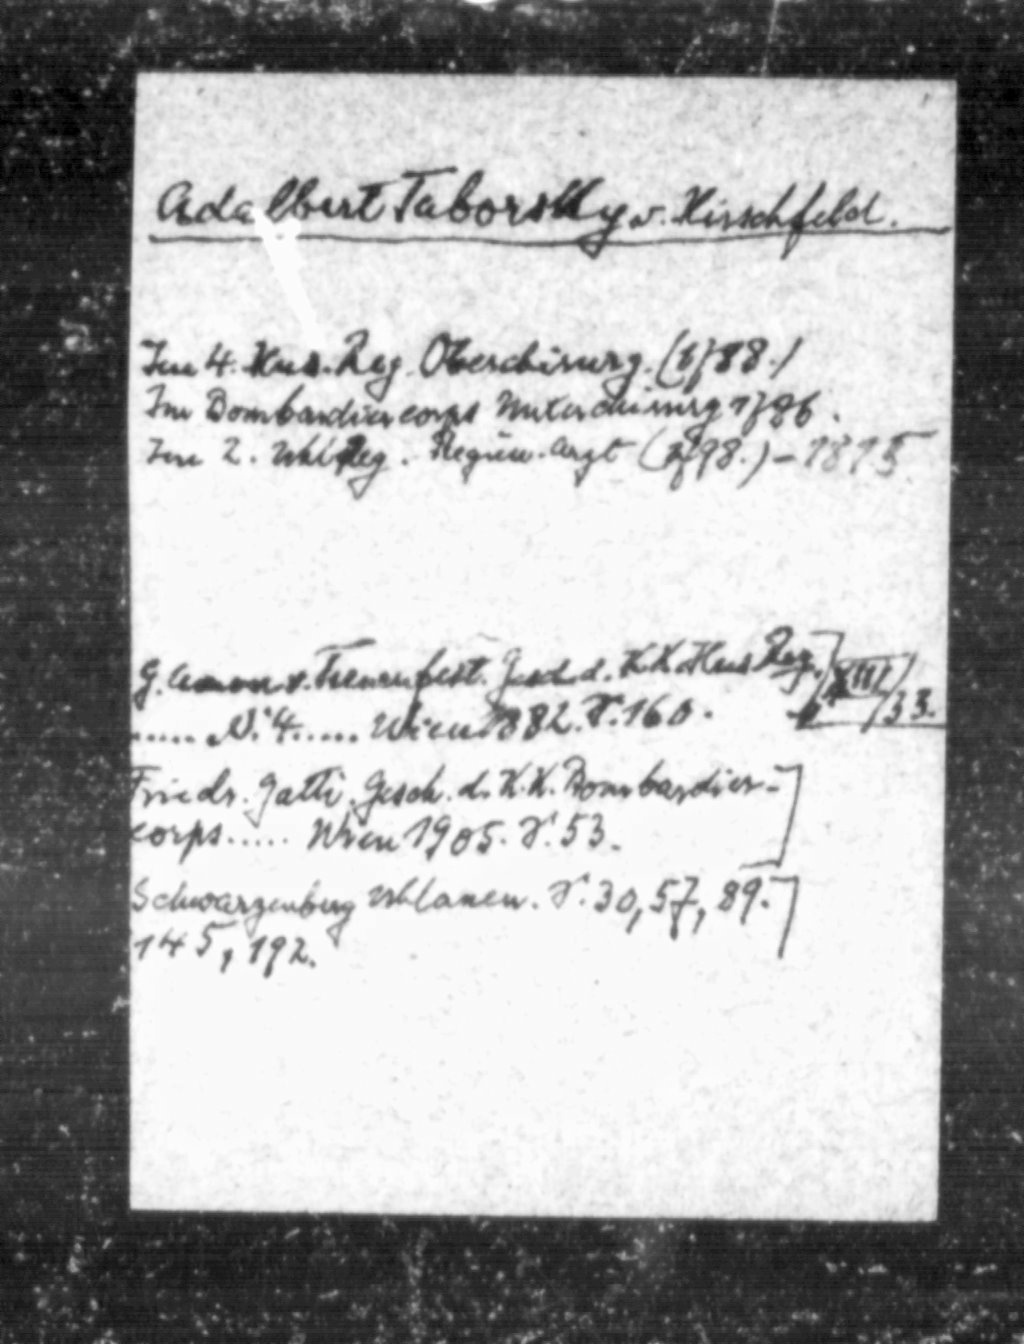 Adalbert Taborsky v. Hirschfeld.
Im 4. Hus. Reg. Oberchirurg. (1788.)
Im Bombardiercorps Unterchirurg 1786.
Im 2. Uhl Reg. Regim. Arzt (1798.) - 1815
G. Amon v. Treuenfest. Gesch d. K.K. Hus Reg.
..... N. 4..... Wien 1882. S. 160.
XIII/33.
Friedr. Gatti. Gesch. d. K.K. Bombardier-
corps..... Wien 1905. S. 53.
Schwarzenberg Uhlanen. S. 30, 57, 89.
145, 192.